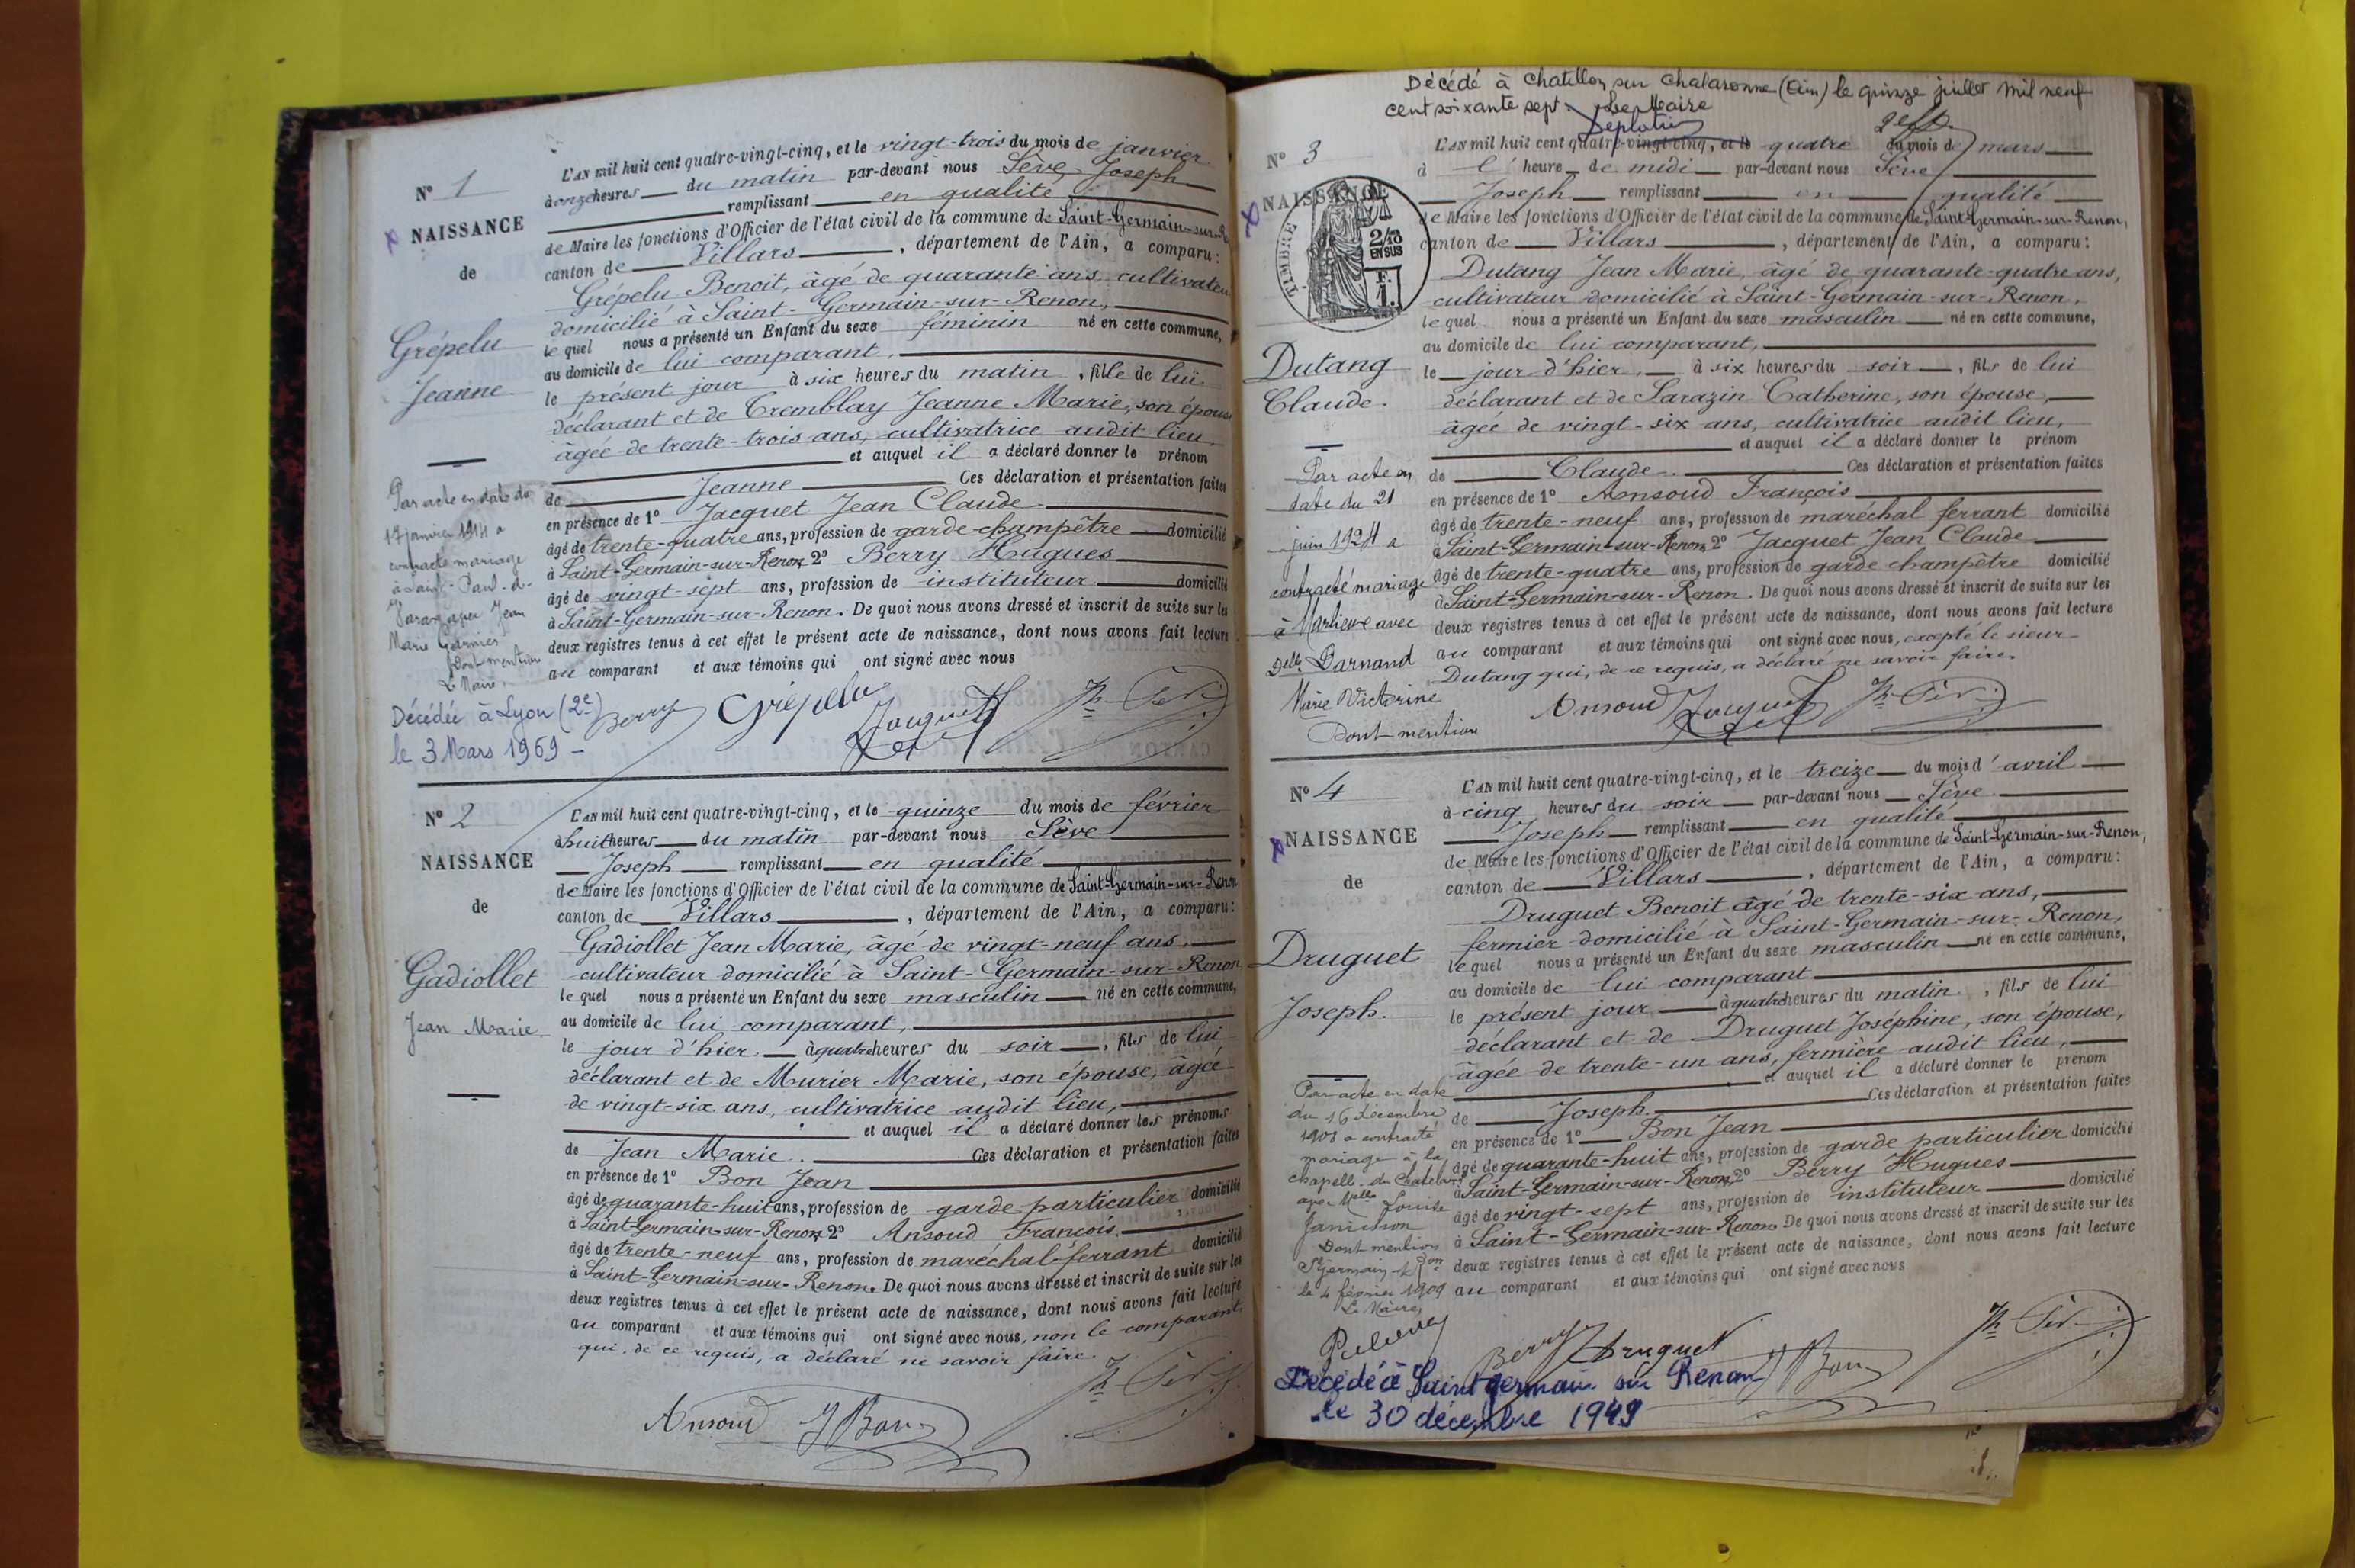 N° 1
NAISSANCE
de
Grépelu
Jeanne
Par acte en date du
17 janvier 1914 a
contracté mariage
à Saint-Paul-de-
Varax avec Jean
Marie Garnier
Dont mention
Le Maire,
Décédée à Lyon (2e)
le 3 Mars 1969 -
L'AN mil huit cent quatre-vingt-cinq, et le vingt-trois du mois de janvier
à onze heures du matin par-devant nous Sève Joseph
remplissant en qualité
de Maire les fonctions d'Officier de l'état civil de la commune de Saint-Germain-sur-R
canton de Villars, département de l'Ain, a comparu:
Grépelu Benoit, âgé de quarante ans cultivateu
domicilié à Saint-Germain-sur-Renon,
le quel nous a présenté un Enfant du sexe féminin né en cette commune,
au domicile de lui comparant,
le présent jour à six heures du matin, fille de lui
déclarant et de Tremblay Jeanne Marie, son épouse
âgée de trente-trois ans, cultivatrice audit lieu,
et auquel il a déclaré donner le prénom
de Jeanne Ces déclaration et présentation faites
en présence de 1° Jacquet Jean Claude
âgé de trente-quatre ans, profession de garde-champêtre domicilié
à Saint-Germain-sur-Renon, 2° Berry Hugues
âgé de vingt-sept ans, profession de instituteur domicilié
à Saint-Germain-sur-Renon. De quoi nous avons dressé et inscrit de suite sur les
deux registres tenus à cet effet le présent acte de naissance, dont nous avons fait lecture
au comparant et aux témoins qui ont signé avec nous
Berry Grépelu Jacquet Jh Sève
N° 2
NAISSANCE
de
Gadiollet
Jean Marie
L'AN mil huit cent quatre-vingt-cinq, et le quinze du mois de février
à huit heures du matin par-devant nous Sève
Joseph remplissant en qualité
de Maire les fonctions d'Officier de l'état civil de la commune de Saint-Germain-sur-Renon
canton de Villars, département de l'Ain, a comparu:
Gadiollet Jean Marie, âgé de vingt-neuf ans,
cultivateur domicilié à Saint-Germain-sur-Renon
le quel nous a présenté un Enfant du sexe masculin né en cette commune,
au domicile de lui comparant,
le jour d'hier à quatre heures du soir, fils de lui
déclarant et de Murier Marie, son épouse, âgée
de vingt-six ans, cultivatrice audit lieu,
et auquel il a déclaré donner les prénoms
de Jean Marie. Ces déclaration et présentation faites
en présence de 1° Bon Jean
âgé de quarante-huit ans, profession de garde particulier domicilié
à Saint-Germain-sur-Renon, 2° Ansoud François,
âgé de trente-neuf ans, profession de maréchal-ferrant domicilié
à Saint-Germain-sur-Renon. De quoi nous avons dressé et inscrit de suite sur les
deux registres tenus à cet effet le présent acte de naissance, dont nous avons fait lecture
au comparant et aux témoins qui ont signé avec nous, non le comparant
qui, de ce requis, a déclaré ne savoir faire.
Ansoud J Bon Jh Sève
Décédé à Chatillon sur Chalaronne (Ain) le quinze juillet mil neuf
cent soixante sept. Le Maire
N° 3
NAISSANCE
TIMBRE
2/10
EN SUS
F.
1.
Dutang
Claude.
Par acte en
date du 21
juin 1924 a
contracté mariage
à Marlieux avec
Delle Darnand
Marie Victorine
Dont mention
L'AN mil huit cent quatre-vingt-cinq, et le quatre du mois de mars
à l' heure de midi par-devant nous Sève
Joseph remplissant en qualité
de Maire les fonctions d'Officier de l'état civil de la commune de Saint-Germain-sur-Renon,
canton de Villars, département de l'Ain, a comparu:
Dutang Jean Marie, âgé de quarante-quatre ans,
cultivateur domicilié à Saint-Germain-sur-Renon.
le quel nous a présenté un Enfant du sexe masculin né en cette commune,
au domicile de lui comparant,
le jour d'hier, à six heures du soir, fils de lui
déclarant et de Sarazin Catherine, son épouse,
âgée de vingt-six ans, cultivatrice audit lieu,
et auquel il a déclaré donner le prénom
de Claude. Ces déclaration et présentation faites
en présence de 1° Ansoud François
âgé de trente-neuf ans, profession de maréchal ferrant domicilié
à Saint-Germain-sur-Renon, 2° Jacquet Jean Claude
âgé de trente-quatre ans, profession de garde champêtre domicilié
à Saint-Germain-sur-Renon. De quoi nous avons dressé et inscrit de suite sur les
deux registres tenus à cet effet le présent acte de naissance, dont nous avons fait lecture
au comparant et aux témoins qui ont signé avec nous, excepté le sieur
Dutang qui, de ce requis, a déclaré ne savoir faire.
Ansoud Jacquet Jh Sève
N° 4
NAISSANCE
de
Druguet
Joseph.
Par acte en date
du 16 décembre
1901 a contracté
mariage à la
chapelle du Chatelard
avec Melle Louise
Janichon
Dont mention
St Germain-s-Rnon
le 4 février 1909
Le Maire,
L'AN mil huit cent quatre-vingt-cinq, et le treize du mois d'avril
à cinq heures du soir par-devant nous Sève
Joseph remplissant en qualité
de Maire les fonctions d'Officier de l'état civil de la commune de Saint-Germain-sur-Renon,
canton de Villars, département de l'Ain, a comparu:
Druguet Benoit âgé de trente-six ans,
fermier domicilié à Saint-Germain-sur-Renon,
le quel nous a présenté un Enfant du sexe masculin né en cette commune,
au domicile de lui comparant
le présent jour à quatre heures du matin, fils de lui
déclarant et de Druguet Joséphine, son épouse,
âgée de trente-un ans, fermière audit lieu,
et auquel il a déclaré donner le prénom
de Joseph. Ces déclaration et présentation faites
en présence de 1° Bon Jean
âgé de quarante-huit ans, profession de garde particulier domicilié
à Saint-Germain-sur-Renon, 2° Berry Hugues
âgé de vingt-sept ans, profession de instituteur domicilié
à Saint-Germain-sur-Renon. De quoi nous avons dressé et inscrit de suite sur les
deux registres tenus à cet effet le présent acte de naissance, dont nous avons fait lecture
au comparant et aux témoins qui ont signé avec nous
Berry Druguet J Bon Jh Sève
Décédé à Saint germain sur Renon
le 30 décembre 1949